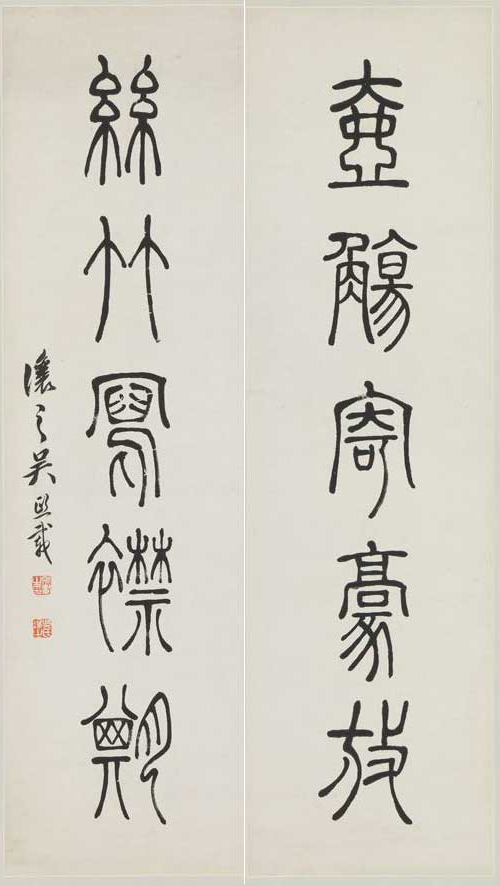 壺觴寄豪放
絲竹寫襟期
讓之吳熙載